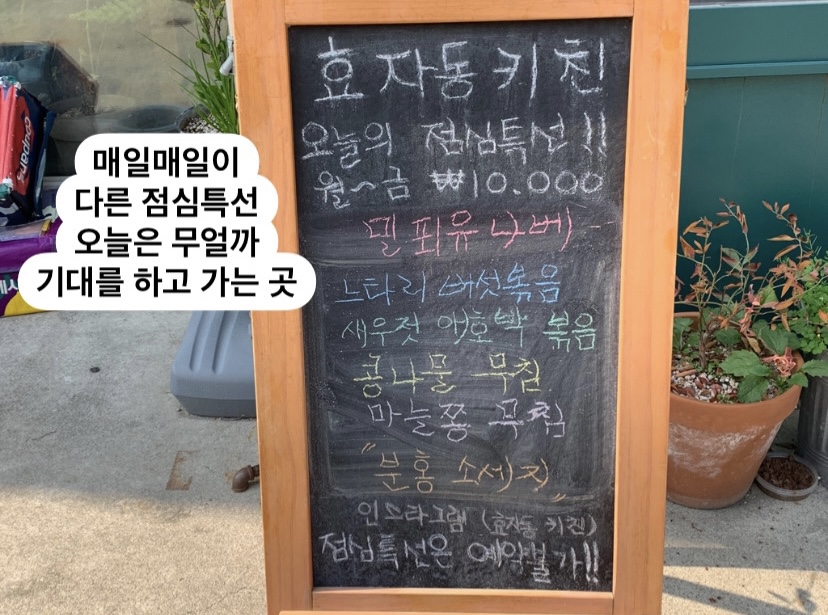 효자동키친
오늘의 점심특선!!
월~금 ₩10.000
밀푀유나베
느타리 버섯볶음
새우젓 애호박 볶음
콩나물 무침
마늘쫑 무침
"분홍 소세지"
인스타그램 (효자동키친)
점심특선은 예약불가!!
매일매일이
다른 점심특선
오늘은 무얼까
기대를 하고 가는 곳